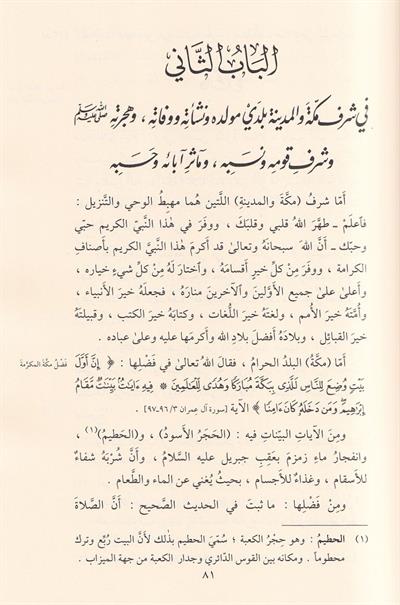 الباب الثاني
في شرف مكة والمدينة بلدي مولده ونشأته ووفاته ، وهجرته ﷺ
وشرف قومه ونسبه ، ومآثر آبائه وحسبه
أمّا شرفُ ( مكَّةَ والمدينةِ ) اللَّتين هُما مهبِطُ الوحي والتَّنزيل :
فاعلَمْ ـ طهَّرَ اللهُ قلبي وقلبَكَ ، ووفَّرَ في هٰذا النَّبيِّ الكريم حبّي
وحبَّك ـ أنَّ اللهَ سبحانَهُ وتعالىٰ قد أكرمَ هٰذا النَّبيَّ الكريم بأصنافِ
الكرامة ، ووفَّرَ مِنْ كلِّ خيرٍ أقسامَهُ ، واختارَ لَهُ مِنْ كلِّ شيءٍ خياره ،
وأعلىٰ علىٰ جميع الأوَّلينَ والآخرينَ منارَهُ ، فجعلَهُ خيرَ الأنبياء ،
وأُمَّتَهُ خيرَ الأُمم ، ولغتَهُ خيرَ اللُّغات ، وكتابَهُ خيرَ الكتب ، وقبيلتَهُ
خيرَ القبائل ، وبلادَهُ أفضلَ بلادِ الله وأكرمَها عليه وعلىٰ عباده .
أمّا ( مكَّةُ ) البلدُ الحرامُ ، فقالَ اللهُ تعالىٰ في فضْلِها : ﴿ إِنَّ أَوَّلَ
فضْلُ مكَّةَ المكرَّمة
بَيْتٍ وُضِعَ لِلنَّاسِ لَلَّذِى بِبَكَّةَ مُبَارَكًا وَهُدًى لِّلْعَٰلَمِينَ * فِيهِ ءَايَٰتٌۢ بَيِّنَٰتٌ مَّقَامُ
إِبْرَٰهِيمَۖ وَمَن دَخَلَهُۥ كَانَ ءَامِنًا ﴾ الآية [سورة آل عمران ٣/ ٩٦ـ٩٧] .
ومِنَ الآياتِ البيّناتِ فيه : ( الحَجَرُ الأسودُ ) ، و( الحَطِيمُ )(١) ،
وانفجارُ ماءِ زمزمَ بعَقِبِ جبريل عليه السَّلامُ ، وأنَّ شُرْبَهُ شفاءٌ
للأسقام ، وغذاءٌ للأجسام ، بحيثُ يُغني عن الماء والطَّعام .
ومِنْ فضْلِها : ما ثبتَ في الحديثِ الصَّحيح : أنَّ الصَّلاةَ
(١) الحطيمُ : وهو حِجْرُ الكعبة ؛ سُمّيَ الحطيم بذلك لأنَّ البيت رُبِّع وترك
محطوماً . ومكانه بين القوس الدّائري وجدار الكعبة من جهة الميزاب .
٨١